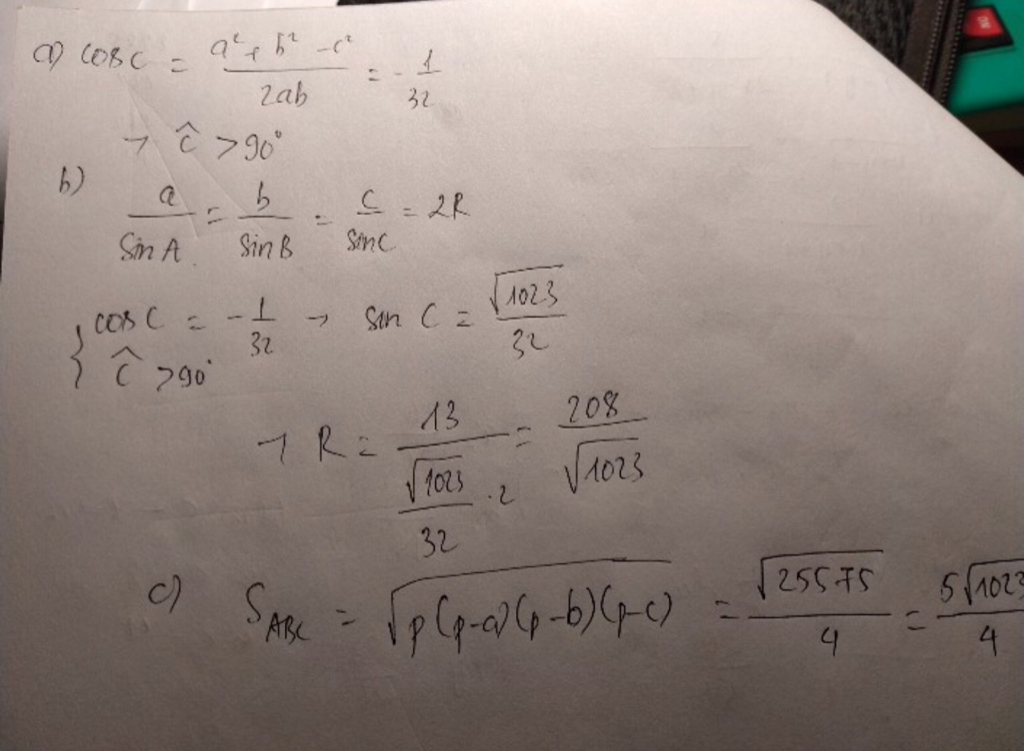 a) cosC = (a² + b² - c²)/(2ab) = -1/32
→ Ĉ > 90°
b)
a/SinA = b/SinB = c/SinC = 2R
{ cosC = -1/32 → sin C = √1023/32
Ĉ > 90°
→ R = 13/(√1023/32 · 2) = 208/√1023
c) S_ABC = √(p(p-a)(p-b)(p-c)) = √25575/4 = 5√1023/4